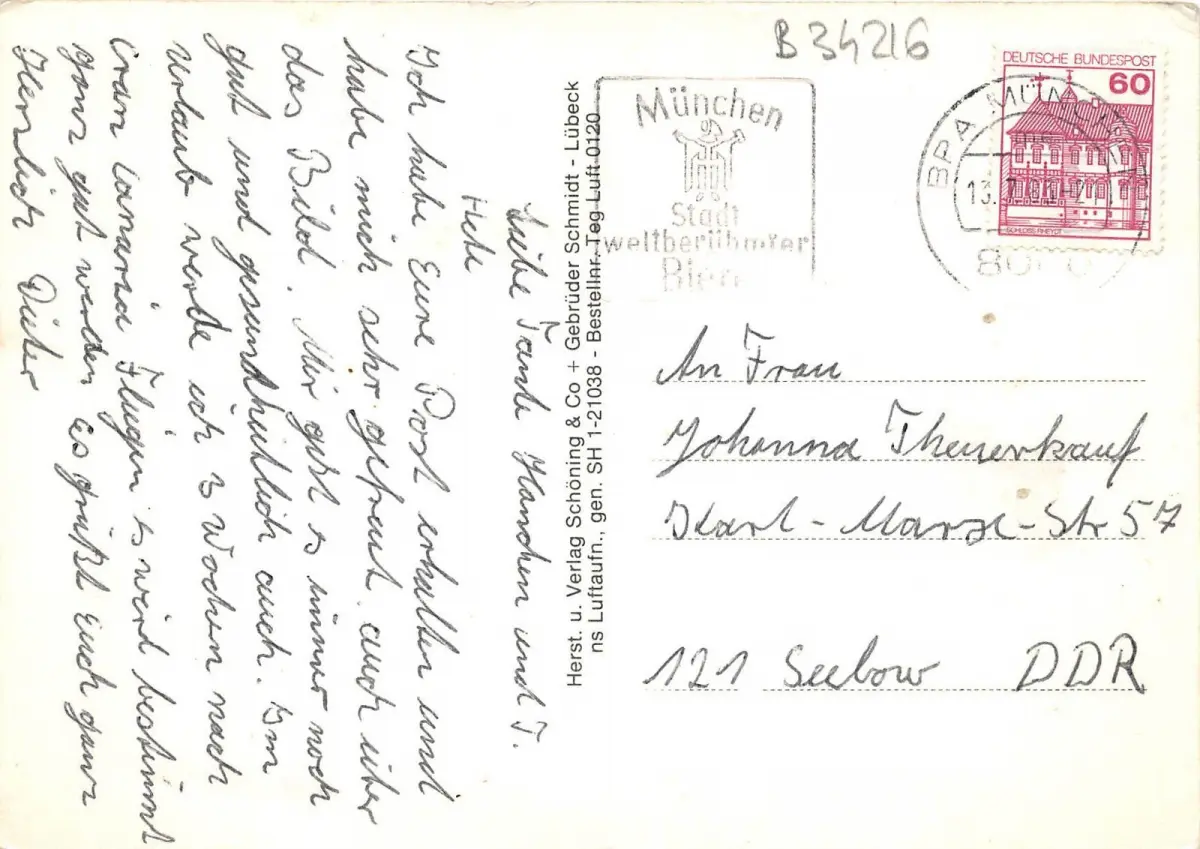 B 34216
DEUTSCHE BUNDESPOST
60
SCHLOSS RHEYDT
München
Stadt
weltberühmter
Biere
BPA MÜN
13.7.
Herst. u. Verlag Schöning & Co + Gebrüder Schmidt - Lübeck
ns Luftaufn., gen. SH 1-21038 - Bestellnr. Teg Luft 0120
Liebe Tante Hanchen und T.
Hete
Ich habe Eure Post erhalten und
habe mich sehr gefreut auch über
das Bild. Mir geht es immer noch
gut und gesundheitlich auch. Im
Urlaub werde ich 3 Wochen nach
Gran Canaria Fliegen es wird bestimmt
ganz gut werden es grüßt Euch ganz
Herzlich Dieter
An Frau
Johanna Theuerkauf
Karl-Marx-Str 57
121 Seebow DDR